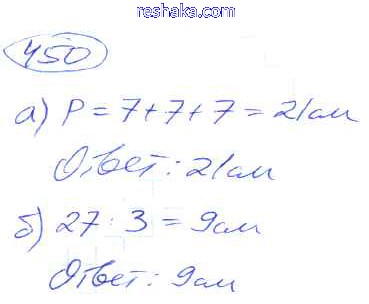 reshaka.com
450
а) P = 7 + 7 + 7 = 21 см
Ответ: 21 см
б) 27 : 3 = 9 см
Ответ: 9 см